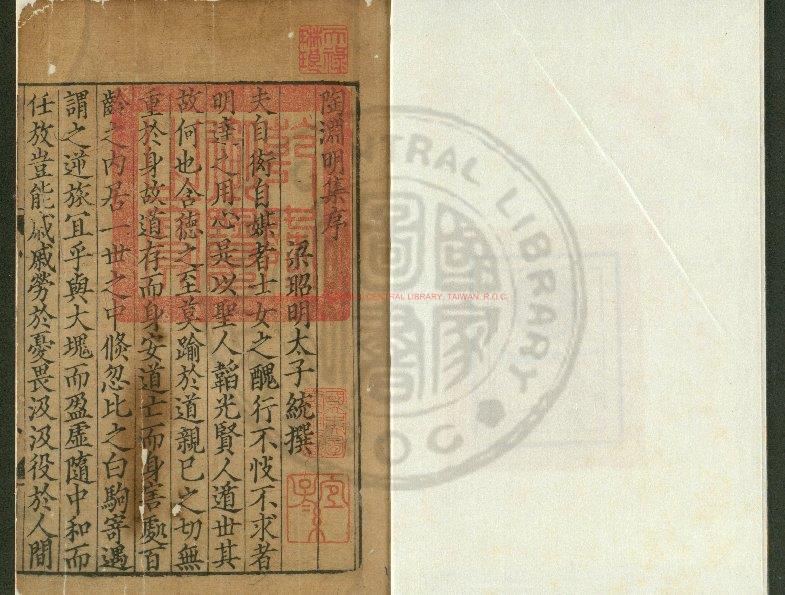 陶淵明集序
梁昭明太子統撰
夫自衒自媒者士女之醜行不忮不求者
明達之用心是以聖人韜光賢人遁世其
故何也含德之至莫踰於道親己之切無
重於身故道存而身安道亡而身害處百
齡之內居一世之中倏忽比之白駒寄遇
謂之逆旅宜乎與大塊而盈虛隨中和而
任放豈能戚戚勞於憂畏汲汲役於人間
CENTRAL LIBRARY, TAIWAN, R.O.C.
CENTRAL LIBRARY
ROC
國家圖書